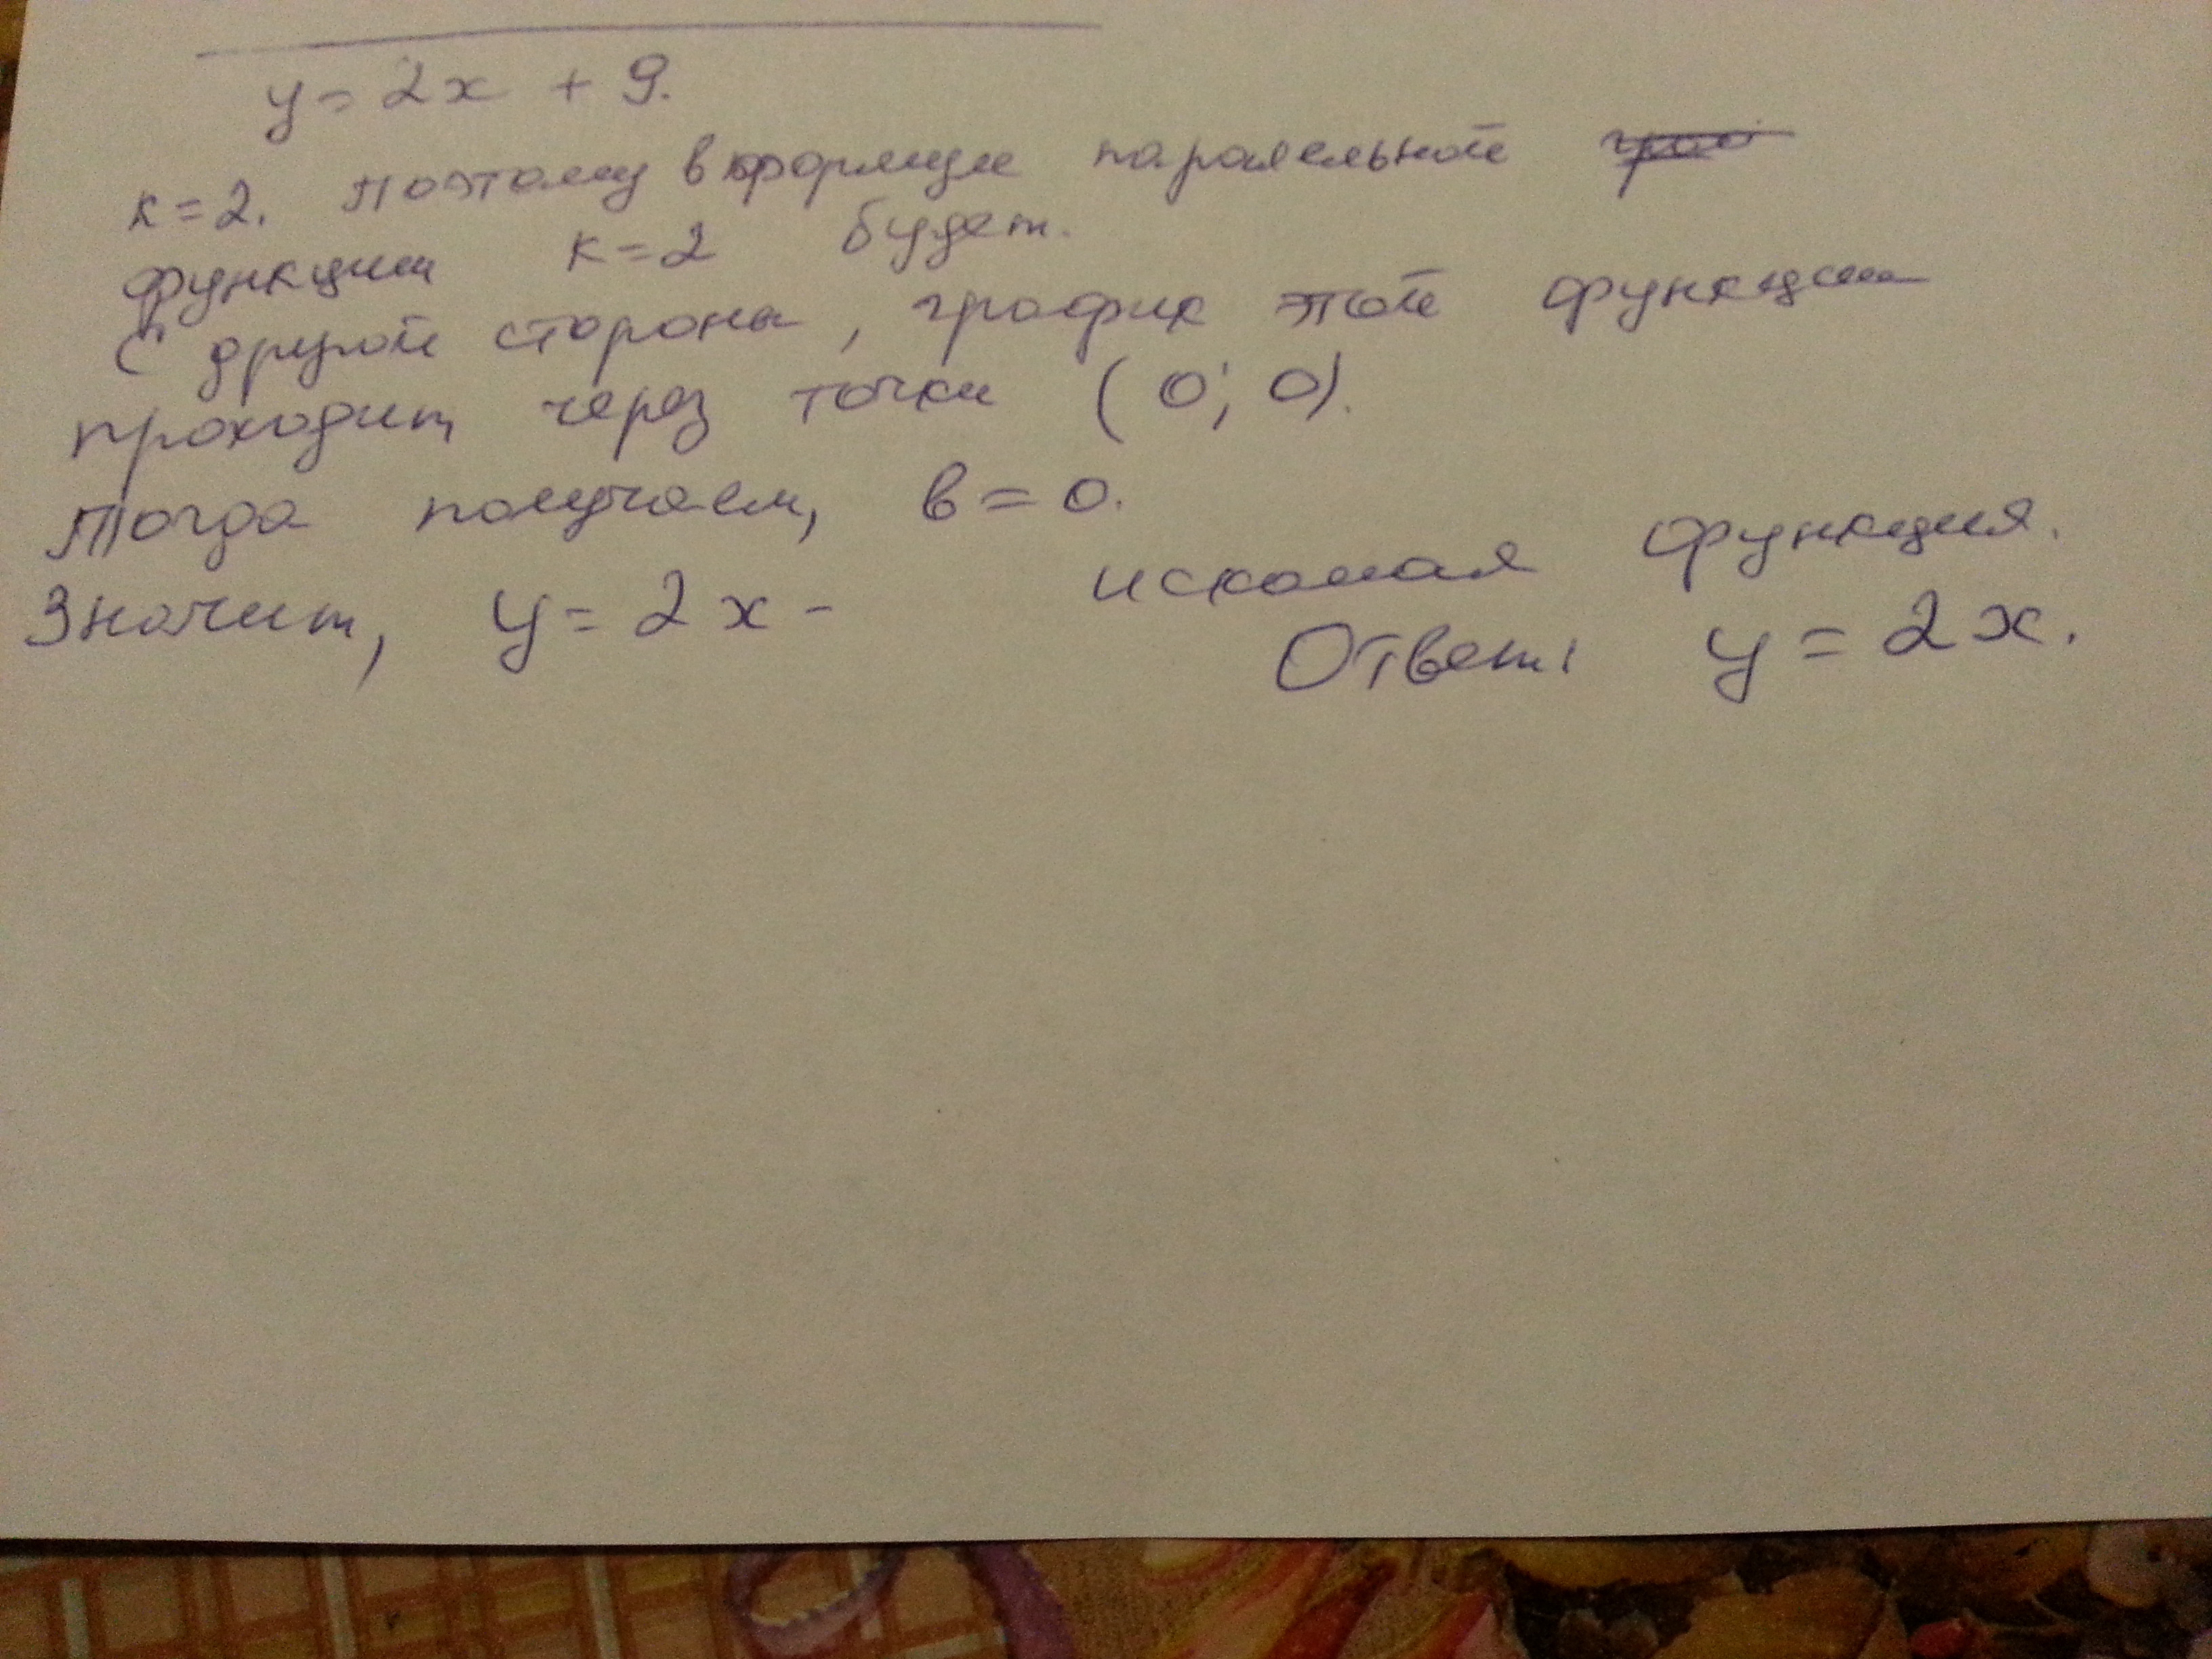 y = 2x + 9.
к=2. Поэтому в формуле паралельной
функции к=2 будет.
С другой стороны, график этой функции
проходит через точки (0; 0).
Тогда получаем, в=0.
Значит, y = 2x - искомая функция.
Ответ: y = 2x.